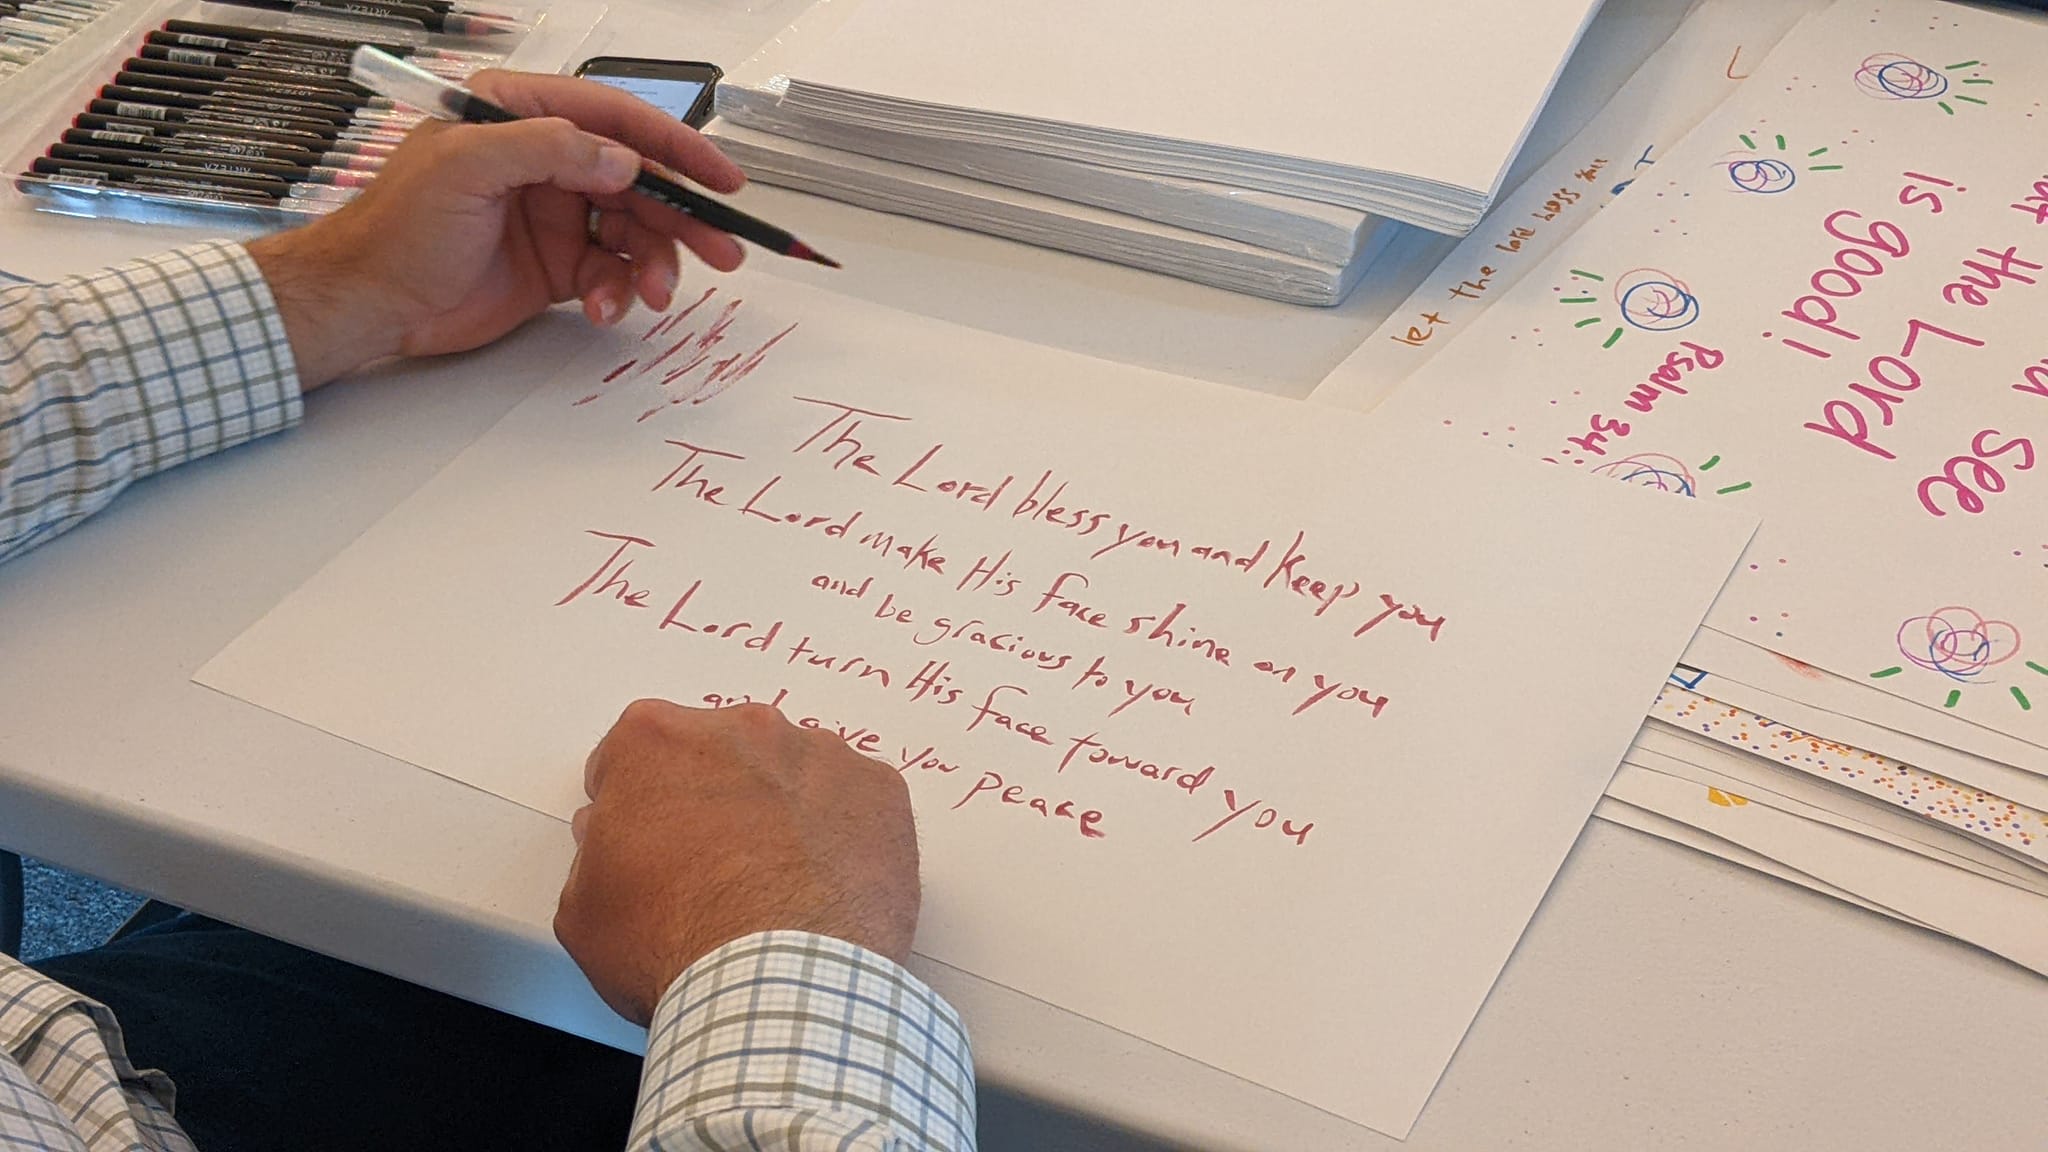 The Lord bless you and keep you
The Lord make His face shine on you
and be gracious to you
The Lord turn His face toward you
and give you peace
let the lord bless
the Lord
see
is good!
Psalm 34:
ARTEZA
ARTEZA
ARTEZA